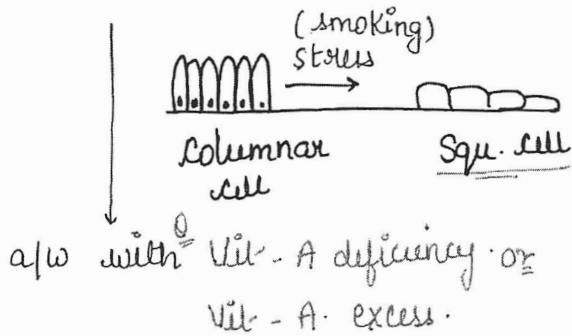 (smoking)
stress
Columnar
cell
Squ. cell
a/w with Vit - A deficiency or
Vit - A. excess.